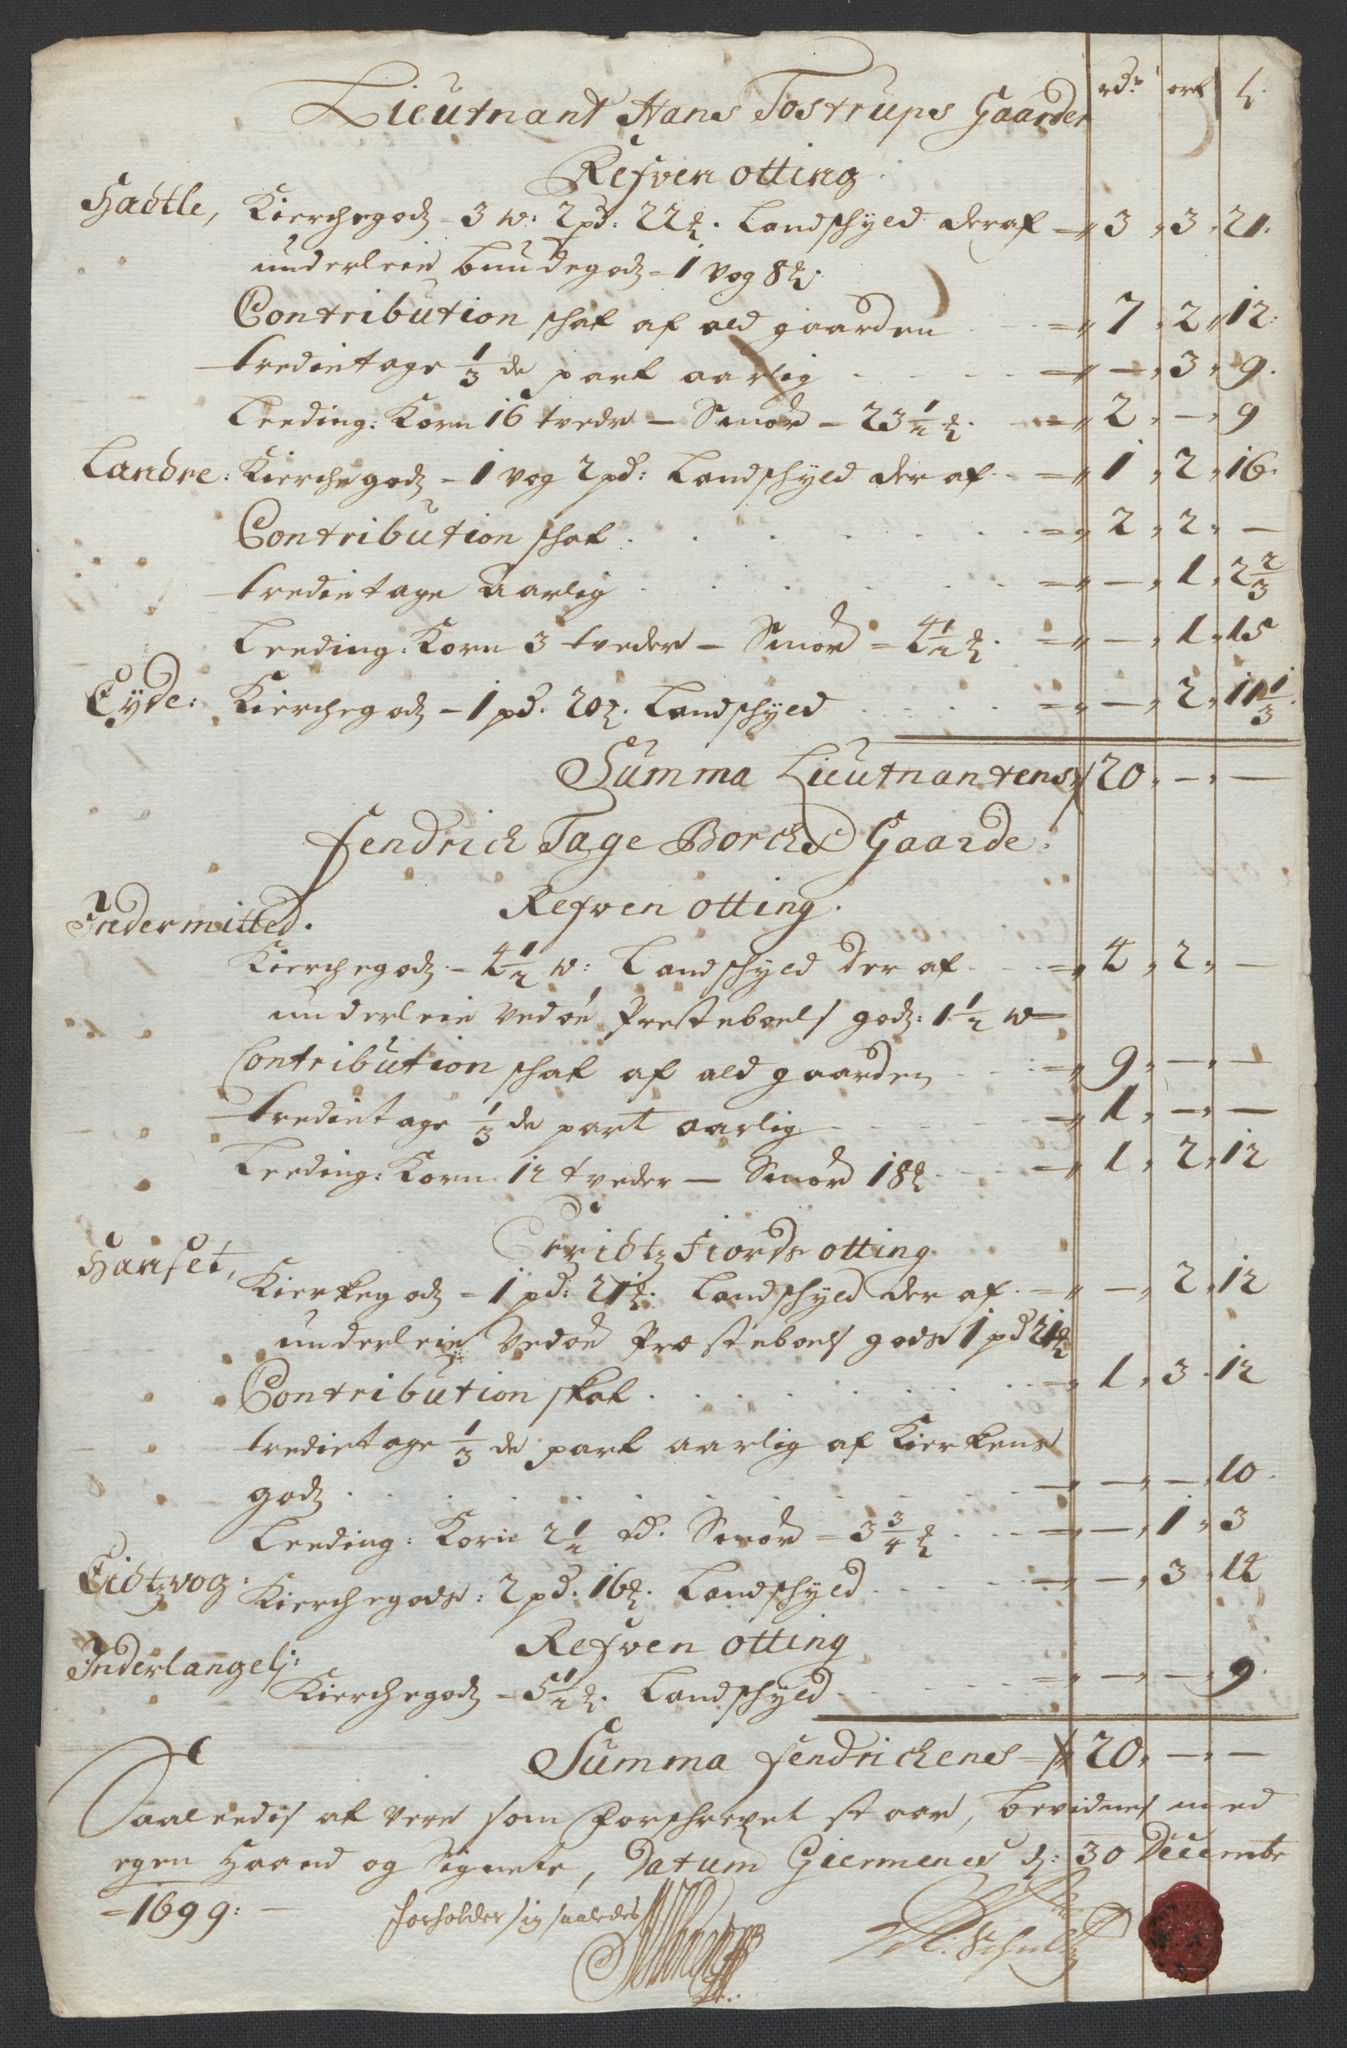 rdr ort ß
Lieutnant Hans Tostrups Gaarder
Refven otting.
Hadtle, Kierchegodz - 3 w: 2 pd: 22 ℔. Landschyld deraf = 3, 3, 21.
underleie bundegodz - 1 vog 8 ℔.
Contribution schat af ald gaarden = 7, 2, 12:
tredietage 1/3 de part aarlig = —, 3, 9.
Leeding: Korn 16 tveder — Smør - 23 1/2 ℔. = 2, —, 9
Landre: Kierchegodz - 1 vog 2 pd: Landschyld der af = 1, 2, 16.
Contribution schat = 2, 2, —
tredietage aarlig = —, 1, 2 2/3
Leeding: Korn 3 tveder — Smør - 4 1/2 ℔. = —, 1, 15
Eyde: Kierchegodz - 1 pd. 20 ℔. Landschyld = —, 2, 11 1/3.
Summa Lieutnantens 20, —, —
Fendrich Tage Borchs Gaarde.
Refven otting.
Indermitted.
Kierchegodz. - 4 1/2 w: Landschyld der af = 4, 2, —
underleie Vedøe Presteboels godz: 1 1/2 w
Contribution schat af ald gaarden = 9, —, —
tredietage 1/3 de part aarlig = 1, —, —
Leeding: Korn 12 tveder — Smør 18 ℔ = 1, 2, 12
fiords otting
Hanset, Kierkegodz - 1 pd: 21 ℔. Landschyld der af. = —, 2, 12
underleie Vedøe Præsteboels gods 1 pd 21 ℔
Contribution skat = 1, 3, 12
tredietage 1/3 de part aarlig af Kierkens
godz = —, —, 10.
Leeding: Korn 2 1/2 td. Smør - 3 3/4 ℔ = —, 1, 3
Eidtzvog: Kierchegods: 2 pd. 16 ℔. Landschyld = —, 3, 14
Refven otting
Inderlangelj: Kierchegodz - 5 1/2 ℔. Landschyld = —, —, 9.
Summa fendrichens 20, —, —
Saaledis at vere som forschrefvet staar, bevidnes med
egen Haand og Signete, Datum Giermenes d: 30 Decembr
1699:
forholder sig saaledes
Schultz